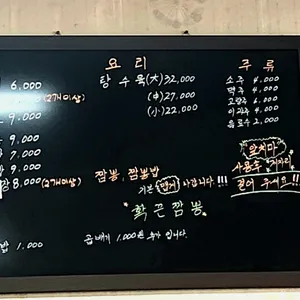 요리
탕수육(大) 32,000
(中) 27,000
(小) 22,000
주류
소주 4,000
맥주 4,000
고량주 6,000
이과두 4,000
음료수 2,000
6,000
(2개이상)
9,000
9,000
7,000
9,000
8,000 (2개이상)
밥 1,000
짬뽕, 짬뽕밥
기본 맵게 나갑니다!!!
화끈짬뽕
곱배기 1,000원 추가 입니다.
앞치마
사용후 제자리
걸어 주세요!!!